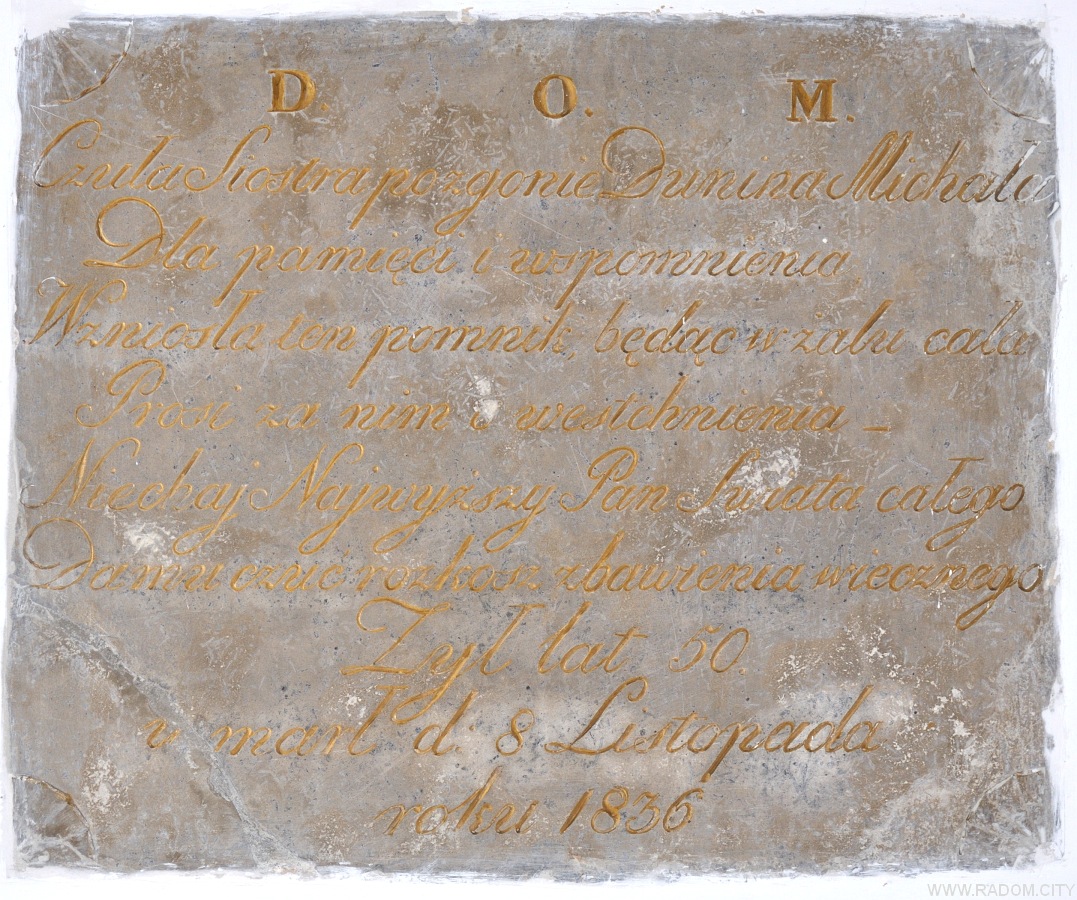 D. O. M.
Czuła Siostra po zgonie Dunina Michała
Dla pamięci i wspomnienia,
Wzniosła ten pomnik, będąc w żalu cała
Prosi za nim o westchnienia _
Niechaj Najwyższy Pan Swiata całego
Da mu czuć rozkosz zbawienia wiecznego
Zył lat 50.
umarł d. 8 Listopada
roku 1836
WWW.RADOM.CITY